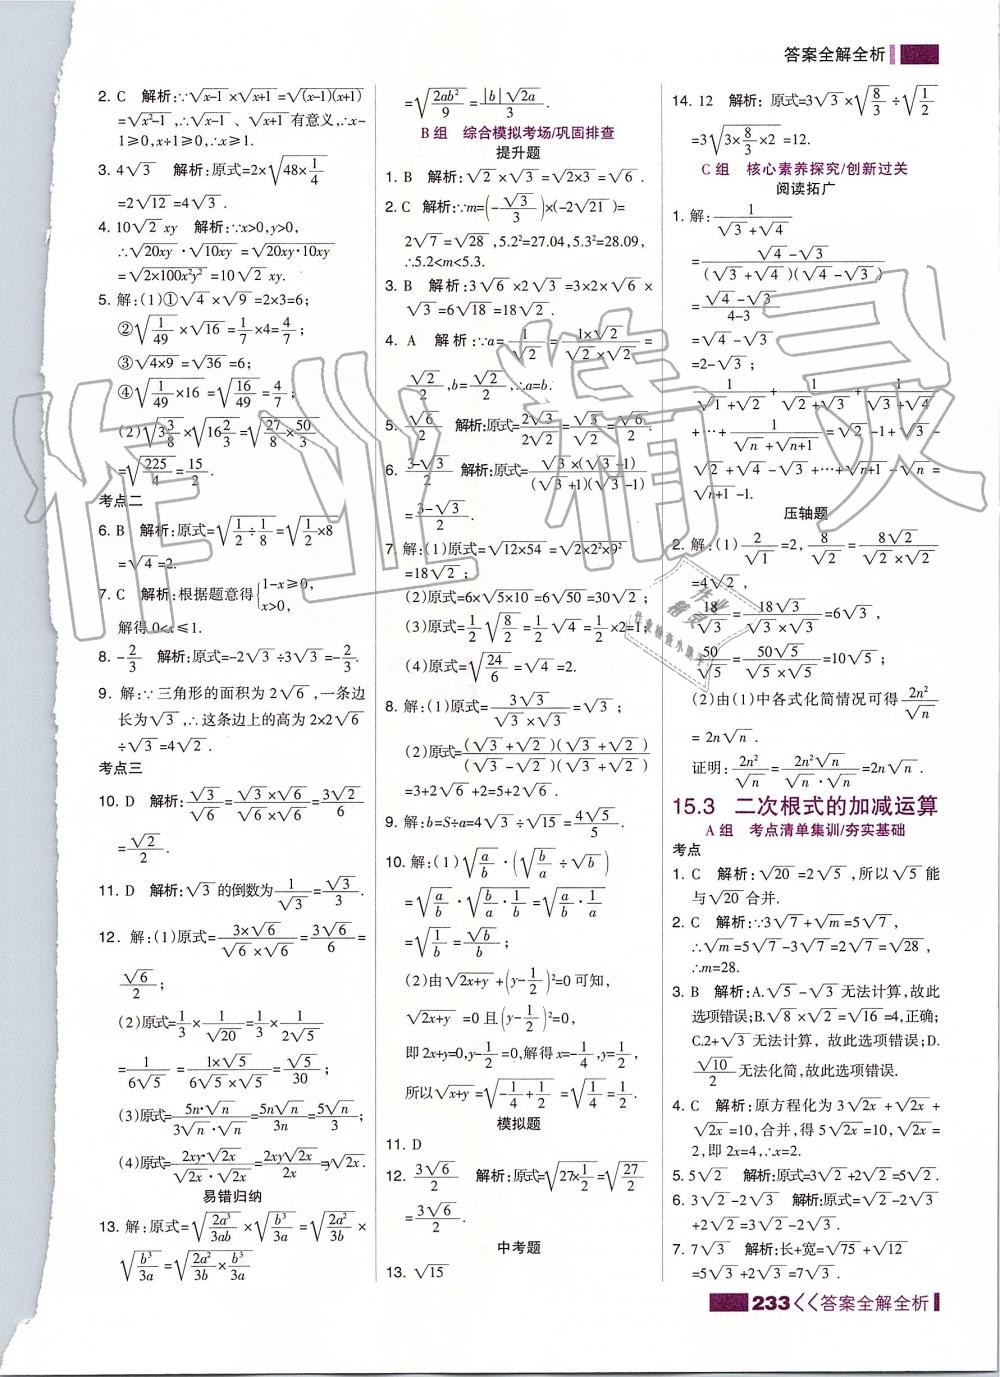 答案全解全析
2. C 解析:∵√(x-1)×√(x+1)=√((x-1)(x+1))
=√(x²-1),∴√(x-1)、√(x+1)有意义,∴x-
1≥0,x+1≥0,∴x≥1.
3. 4√3 解析:原式=2×√(48×1/4)
=2√12=4√3.
4. 10√2xy 解析:∵x>0,y>0,
∴√(20xy)·√(10xy)=√(20xy·10xy)
=√(2×100x²y²)=10√2xy.
5. 解:(1)①√4×√9=2×3=6;
②√(1/49)×√16=1/7×4=4/7;
③√(4×9)=√36=6;
④√(1/49×16)=√(16/49)=4/7;
(2)√(3 3/8)×√(16 2/3)=√(27/8×50/3)
=√(225/4)=15/2.
考点二
6. B 解析:原式=√(1/2÷1/8)=√(1/2×8)
=√4=2.
7. C 解析:根据题意得{1-x≥0, x>0,
解得0<x≤1.
8. -2/3 解析:原式=-2√3÷3√3=-2/3.
9. 解:∵三角形的面积为2√6,一条边
长为√3,∴这条边上的高为2×2√6
÷√3=4√2.
考点三
10. D 解析:√3/√6=(√3×√6)/(√6×√6)=3√2/6
=√2/2.
11. D 解析:√3的倒数为1/√3=√3/3.
12. 解:(1)原式=(3×√6)/(√6×√6)=3√6/6=
√6/2;
(2)原式=1/3×1/√20=1/3×1/(2√5)
=1/(6√5)=(1×√5)/(6√5×√5)=√5/30;
(3)原式=(5n·√n)/(3√n·√n)=5n√n/3n=5√n/3;
(4)原式=(2xy·√2x)/(√2x·√2x)=2xy√2x/2x=y√2x.
易错归纳
13. 解:原式=√(2a³/3ab)×√(b³/3a)=√(2a²/3b)×
√(b³/3a)=√(2a²/3b×b³/3a)
=√(2ab²/9)=|b|√2a/3.
B组 综合模拟考场/巩固排查
提升题
1. B 解析:√2×√3=√(2×3)=√6.
2. C 解析:∵m=(-√3/3)×(-2√21)=
2√7=√28,5.2²=27.04,5.3²=28.09,
∴5.2<m<5.3.
3. B 解析:3√6×2√3=3×2×√6×
√3=6√18=18√2.
4. A 解析:∵a=1/√2=(1×√2)/(√2×√2)=
√2/2,b=√2/2,∴a=b.
5. √6/2 解析:原式=2√3/2√2=√3/√2=√6/2.
6. (3-√3)/2 解析:原式=(√3×(√3-1))/((√3+1)(√3-1))
=(3-√3)/2.
7. 解:(1)原式=√(12×54)=√(2×2²×9²)
=18√2;
(2)原式=6×√(5×10)=6√50=30√2;
(3)原式=1/2√(8/2)=1/2√4=1/2×2=1;
(4)原式=√(24/6)=√4=2.
8. 解:(1)原式=3√3/(√3×√3)=√3;
(2)原式=((√3+√2)(√3+√2))/((√3-√2)(√3+√2))
=3+2√6+2=5+2√6.
9. 解:b=S÷a=4√3÷√15=4√5/5.
10. 解:(1)√(a/b)·(√(b/a)÷√b)
=√(a/b)·√(b/a·1/b)=√(a/b·1/a)
=√(1/b)=√b/b;
(2)由√(2x+y)+(y-1/2)²=0可知,
√(2x+y)=0且(y-1/2)²=0,
即2x+y=0,y-1/2=0,解得x=-1/4,y=1/2,
所以√(x+y)=√(-1/4+1/2)=1/2.
模拟题
11. D
12. 3√6/2 解析:原式=√(27×1/2)=√(27/2)
=3√6/2.
中考题
13. √15
14. 12 解析:原式=3√3×√(8/3)÷√(1/2)
=3√(3×8/3×2)=12.
C组 核心素养探究/创新过关
阅读拓广
1. 解:1/(√3+√4)
=(√4-√3)/((√3+√4)(√4-√3))
=(√4-√3)/(4-3)
=√4-√3
=2-√3;
1/(√1+√2)+1/(√2+√3)+1/(√3+√4)
+…+1/(√n+√(n+1))=√2-1+√3-
√2+√4-√3+…+√(n+1)-√n=
√(n+1)-1.
压轴题
2. 解:(1)2/√1=2,8/√2=8√2/2
=4√2,
18/√3=18√3/3=6√3,
50/√5=50√5/(√5×√5)=10√5;
(2)由(1)中各式化简情况可得2n²/√n
=2n√n.
证明:2n²/√n=2n²√n/(√n·√n)=2n√n.
15.3 二次根式的加减运算
A组 考点清单集训/夯实基础
考点
1. C 解析:√20=2√5,所以√5能
与√20合并.
2. C 解析:∵3√7+√m=5√7,
∴√m=5√7-3√7=2√7=√28,
∴m=28.
3. B 解析:A.√5-√3无法计算,故此
选项错误;B.√8×√2=√16=4,正确;
C.2+√3无法计算,故此选项错误;D.
√10/2无法化简,故此选项错误.
4. C 解析:原方程化为3√2x+√2x+
√2x=10,合并,得5√2x=10,√2x=2,
即2x=4,∴x=2.
5. 5√2 解析:原式=3√2+2√2=5√2.
6. 3√2-2√3 解析:原式=√2-2√3
+2√2=3√2-2√3.
7. 7√3 解析:长+宽=√75+√12
=5√3+2√3=7√3.
233<<答案全解全析
作业精灵
作业
精灵